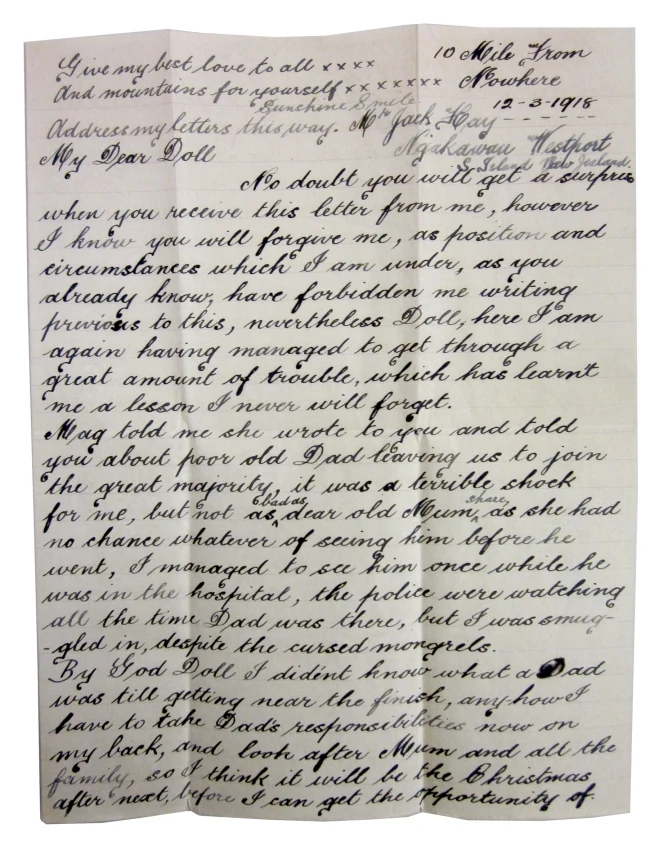 Give my best love to all xxxx
And mountains for yourself xxxxxxx
10 Mile From
Nowhere
12-3-1918
Sunshine Smile
Address my letters this way. Mr Jack Hay
Ngakawau Westport
S. Island New Zeeland.
My Dear Doll
No doubt you will get a surprise
when you receive this letter from me, however
I know you will forgive me, as position and
circumstances which I am under, as you
already know, have forbidden me writing
previous to this, nevertheless Doll, here I am
again having managed to get through a
great amount of trouble, which has learn't
me a lesson I never will forget.
Mag told me she wrote to you and told
you about poor old Dad leaving us to join
the great majority, it was a terrible shock
for me, but not as bad as dear old Mum share, as she had
no chance whatever of seeing him before he
went, I managed to see him once while he
was in the hospital, the police were watching
all the time Dad was there, but I was smug-
-gled in, despite the cursed mongrels.
By God Doll I did'ent know what a Dad
was till getting near the finish, any-how I
have to take Dad's responsibilities now on
my back, and look after Mum and all the
family, so I think it will be the Christmas
after next, before I can get the opportunity of.